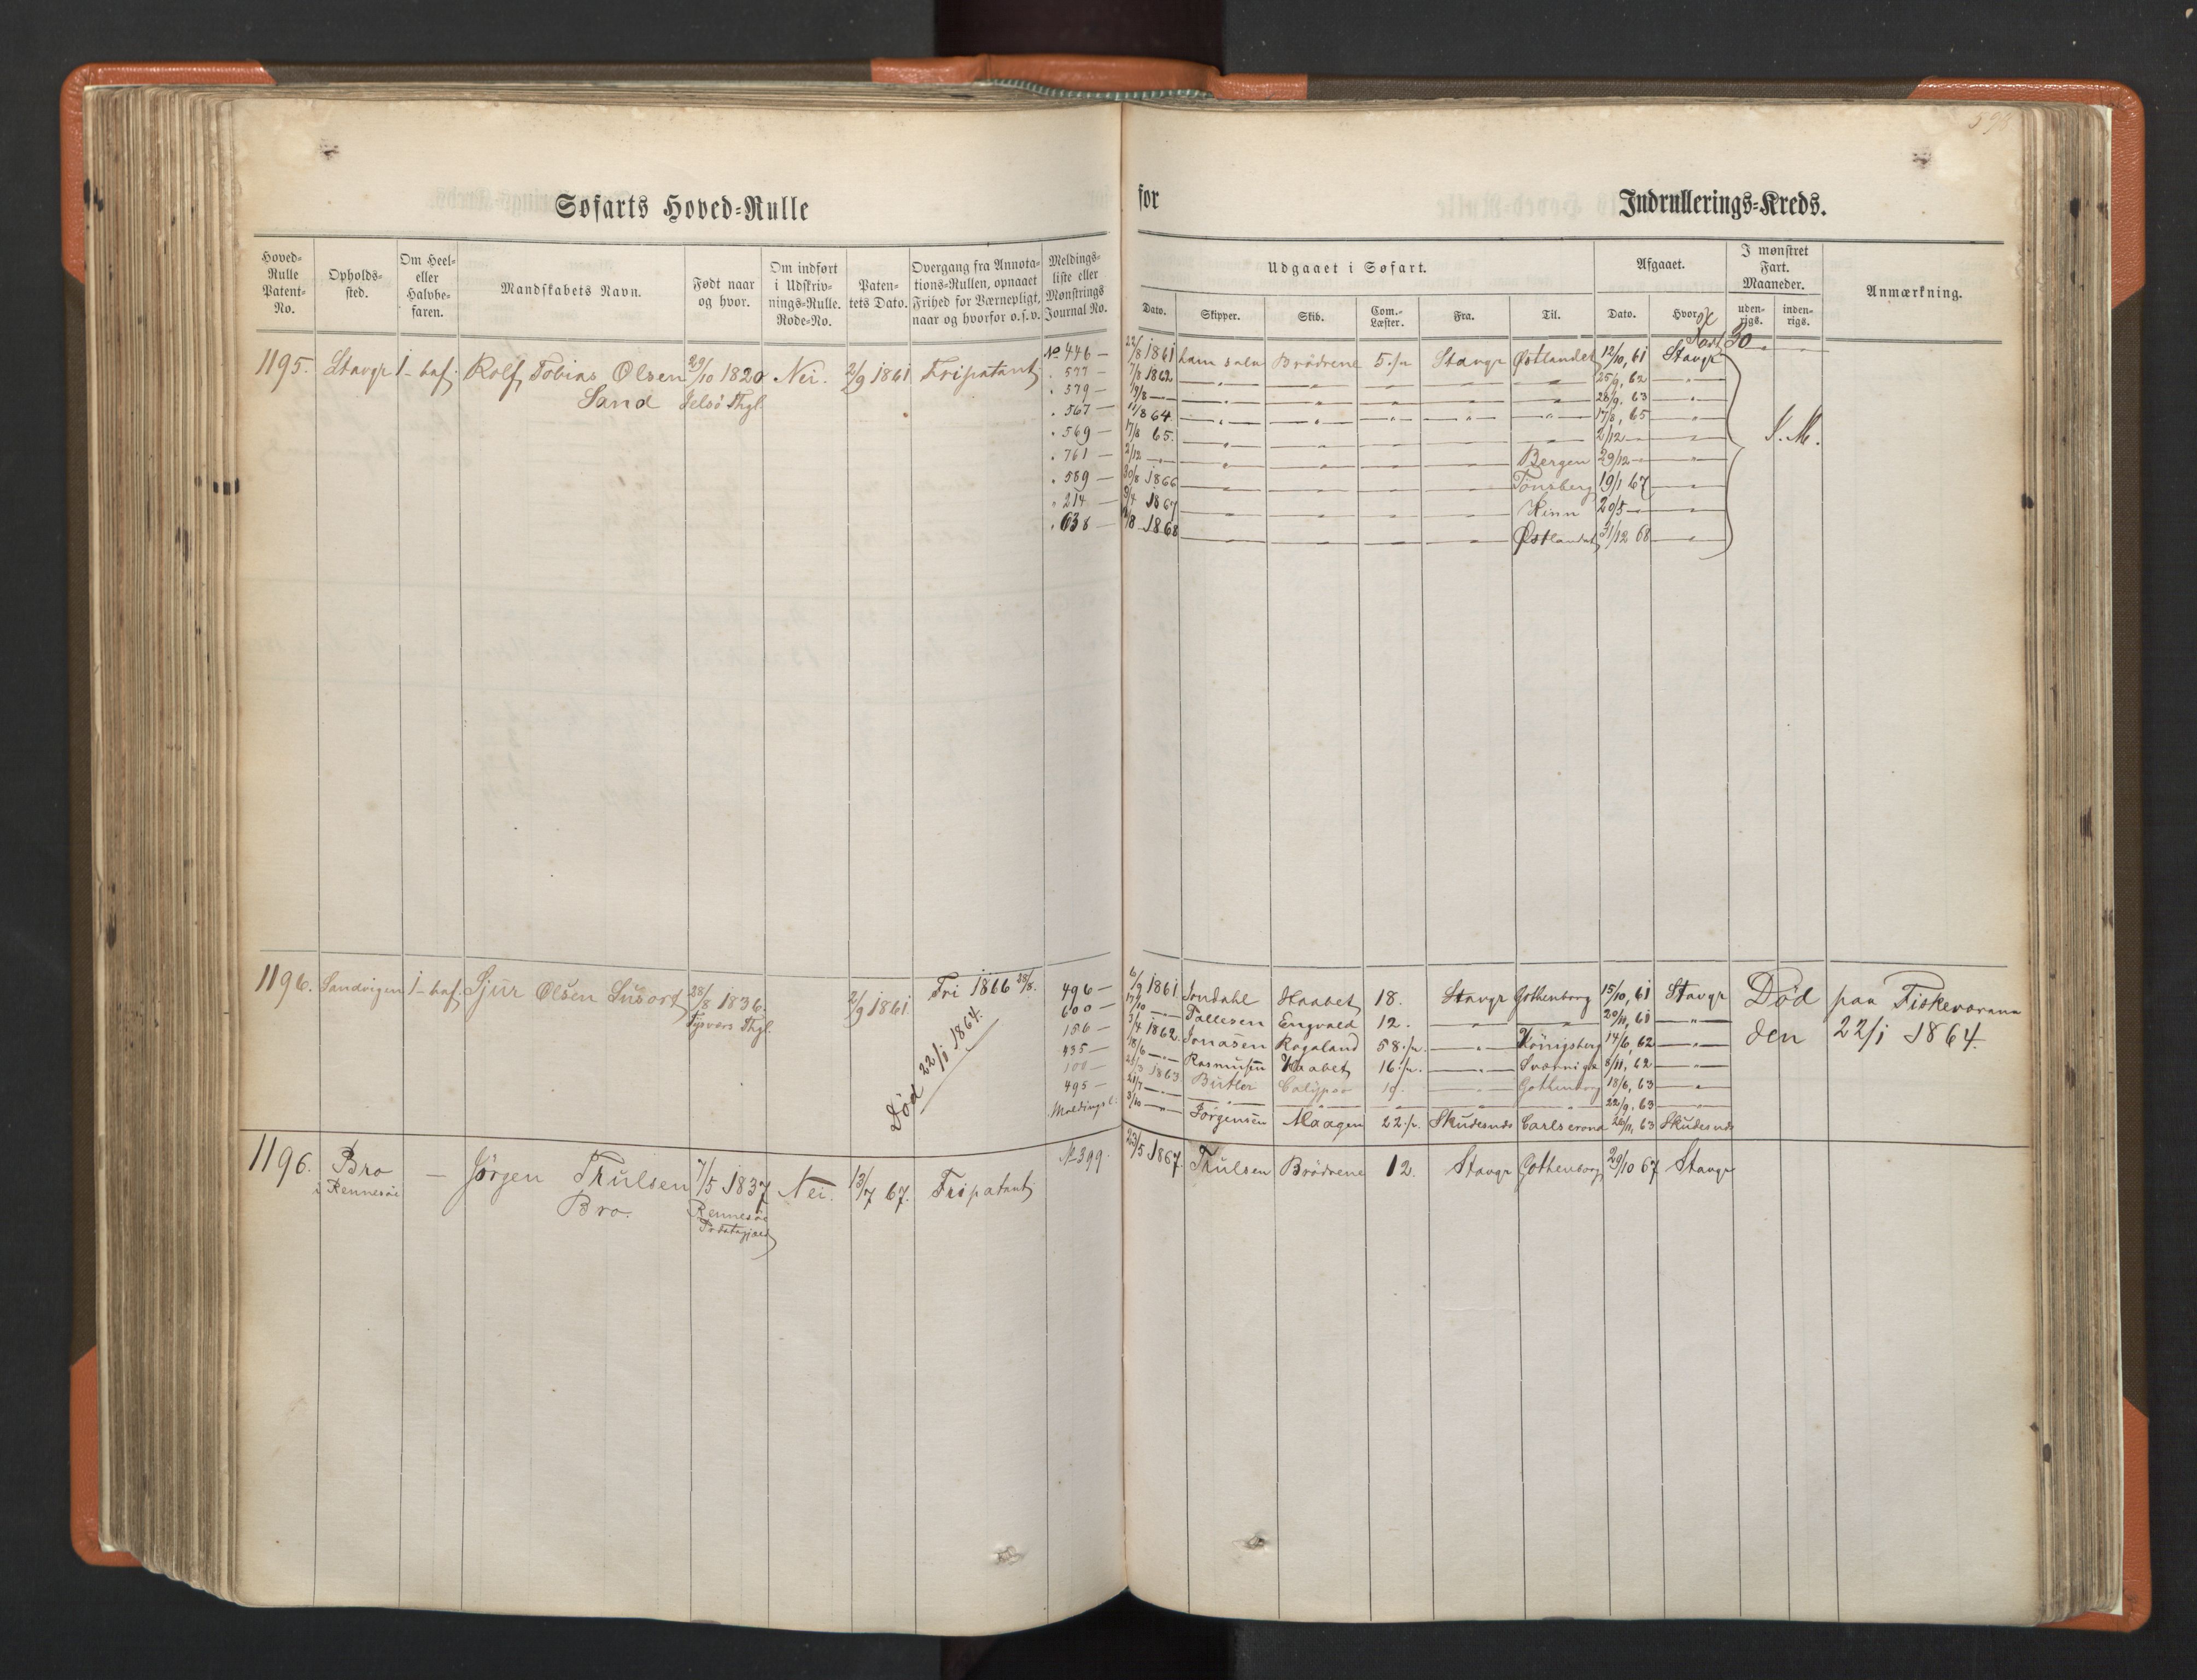 Søfarts Hoved-Rulle
Hoved-Rulle Patent-No.
Opholds-sted.
Om Heel- eller Halvbe-faren.
Mandskabets Navn.
Født naar og hvor.
Om indført i Udskriv-nings-Rulle. Rode-No.
Paten-tets Dato.
Overgang fra Annota-tions-Rullen, opnaaet Frihed for Værnepligt, naar og hvorfor o. s. v.
Meldings-liste eller Mønstrings Journal No.
1195. Stavgr 1- baf. Rolf Tobias Olsen 29/10 1820 Nei. 2/9 1861 Fripatent No 446 —
Sand Jelsø Thgl.
" 577 —
" 579 —
" 567 —
" 569 —
" 761 —
" 589 —
" 214 —
" 638 —
1196. Sandvigen 1- baf. Sjur Olsen Susort 28/8 1836. 2/9 1861. Fri 1866 28/8. 496 —
Tysvers Thgl.
Død 22/1 1864.
600 —
156 —
435 —
100 —
495 —
Meldingsl:
1196. Bro — Jørgen Thulsen 7/5 1837 Nei. 13/7 67. Fripatent No 399.
i Rennesøe Bro. Rennesøe
Præstegjæld
for Indrullerings-Kreds.
Udgaaet i Søfart.
Afgaaet.
I mønstret Fart. Maaneder.
Anmærkning.
Dato.
Skipper.
Skib.
Com.-Læster.
Fra.
Til.
Dato.
Hvor.
uden-rigs.
inden-rigs.
30
22/8 1861 Brødrene Stavgr Østlandet 12/10, 61 Stavgr
7/8 1862 25/9, 62
19/8 — 26/9, 63
11/8 64 17/8, 65
17/8 65. 2/12 —
2/12 — Bergen 29/12 —
30/8 1866 Tønsberg 19/1 67
3/4 1867 Kinn 20/5 —
/8 1868 Østlandet 31/12 68
S. M.
6/9 1861. Jondahl Haabet 18. Stavgr Gothenborg 15/10, 61 Stavgr Død paa Fiskevorana
17/10 — Tallesen Engvald 12. 20/11, 61 den 22/1 1864.
3/4 1862. Jonasen Rogaland 58 Kønigsberg 14/6, 62
18/6 — Rasmusen Haabet 16 8/11, 62
2/3 1863 Butler Calypso 19. Gothenborg 18/6, 63
21/7 — 22/9, 63
3/10 — Jørgensen Maagen 22 Skudesnes Carlscrona 26/11, 63 Skudesnes
23/5 1867. Thulsen Brødrene 12. Stavgr Gothenborg 29/10 67 Stavgr